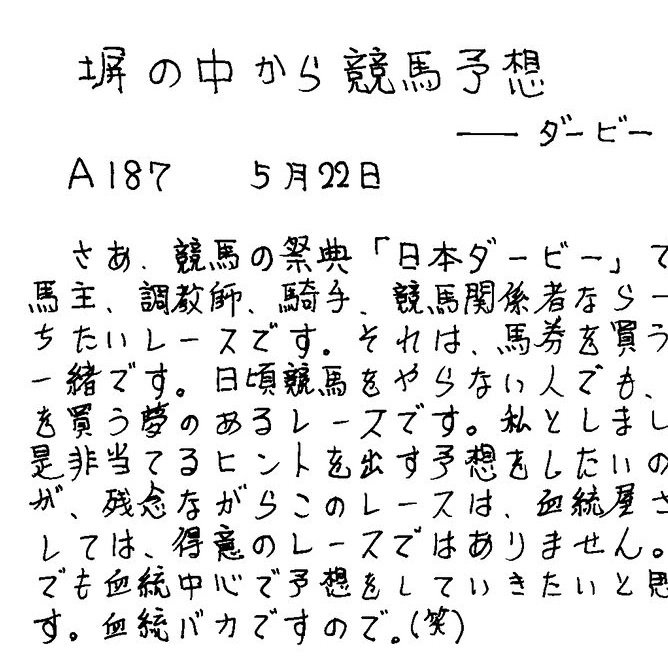 塀の中から競馬予想
── ダービー
A187　5月22日
さあ、競馬の祭典「日本ダービー」で
馬主、調教師、騎手、競馬関係者なら一
ちたいレースです。それは、馬券を買う
一緒です。日頃競馬をやらない人でも、
を買う夢のあるレースです。私としまし
是非当てるヒントを出す予想をしたいの
が、残念ながらこのレースは、血統屋さ
しては、得意のレースではありません。
でも血統中心で予想をしていきたいと思
す。血統バカですので。(笑)